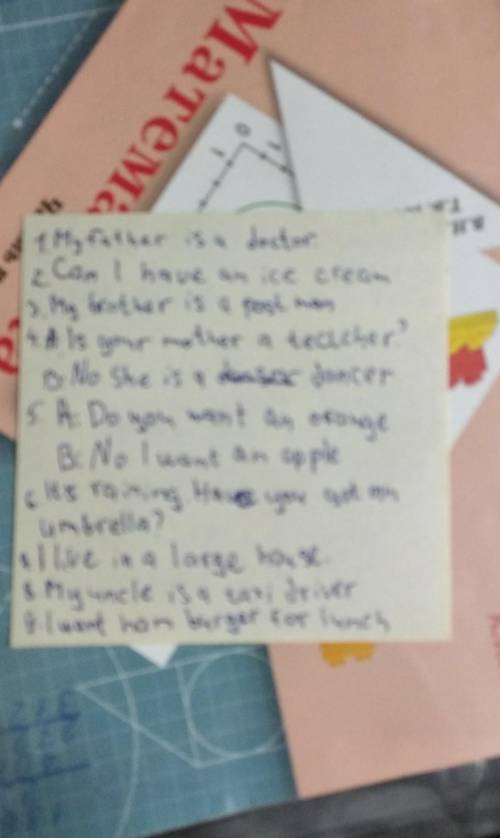 Матема
1. My father is a doctor.
2. Can I have an ice cream
3. My brother is a post man
4. A Is your mother a teacher?
B: No She is a dancer
5. A: Do you want an orange
B: No I want an apple
6. It's raining. Have you got an
umbrella?
I live in a large house.
8. My uncle is a taxi driver
9. I want ham burger for lunch